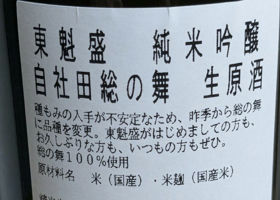 東魁盛　純米吟醸
自社田総の舞　生原酒
種もみの入手が不安定なため、昨季から総の舞
に品種を変更。東魁盛がはじめましての方も、
お久しぶりな方も、いつもの方もぜひ。
総の舞100%使用
原材料名　米(国産)・米麹(国産米)